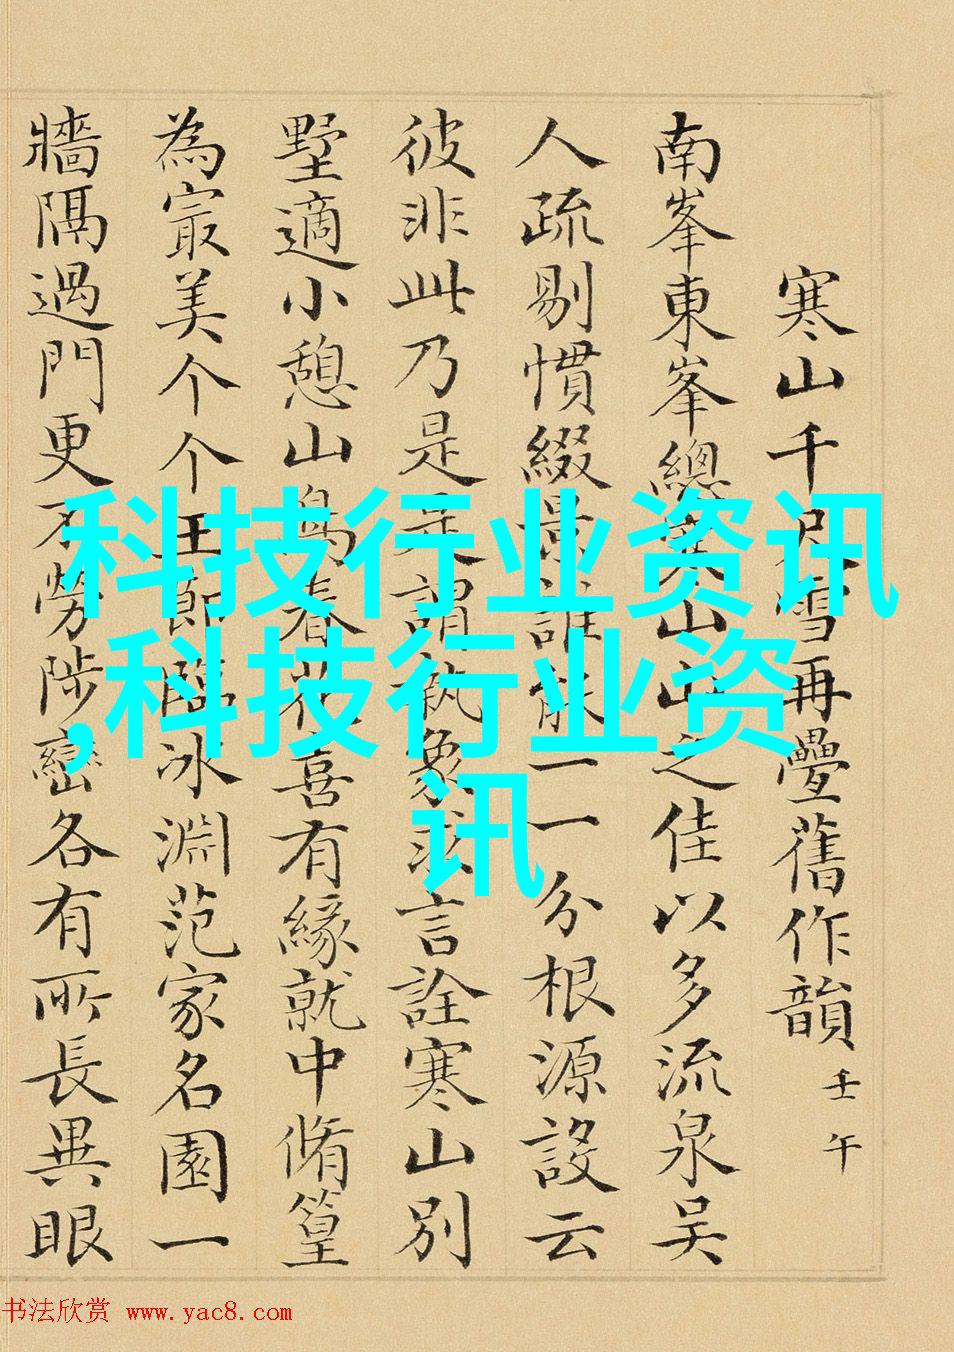 寒山千尺雪再疊舊作韻 壬午
南峯東峯總寒山山之佳以多流泉吴
人疏剔慣綴景誰能一一分根源設云
彼非此乃是是謂執象求言詮寒山別
墅適小憩山鳥春花喜有緣就中脩篁
為㝡美个个玉節臨冰淵范家名園一
牆隔過門更不勞陟巒各有所長異眼
科技行业资讯
,科技行业资
讯
书法欣赏 www.yac8.com